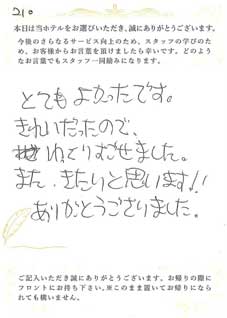 210
本日は当ホテルをお選びいただき、誠にありがとうございます。
今後のさらなるサービス向上のため、スタッフの学びのた
め、お客様からお言葉を頂けましたら幸いです。どのよう
なお言葉でもスタッフ一同励みになります。
とてもよかったです。
きれいだったので、
ゆっくりすごせました。
また、きたいと思います!!
ありがとうございました。
ご記入いただき誠にありがとうございます。お帰りの際に
フロントにお持ち下さい。※このまま置いてお帰りになら
れても構いません。